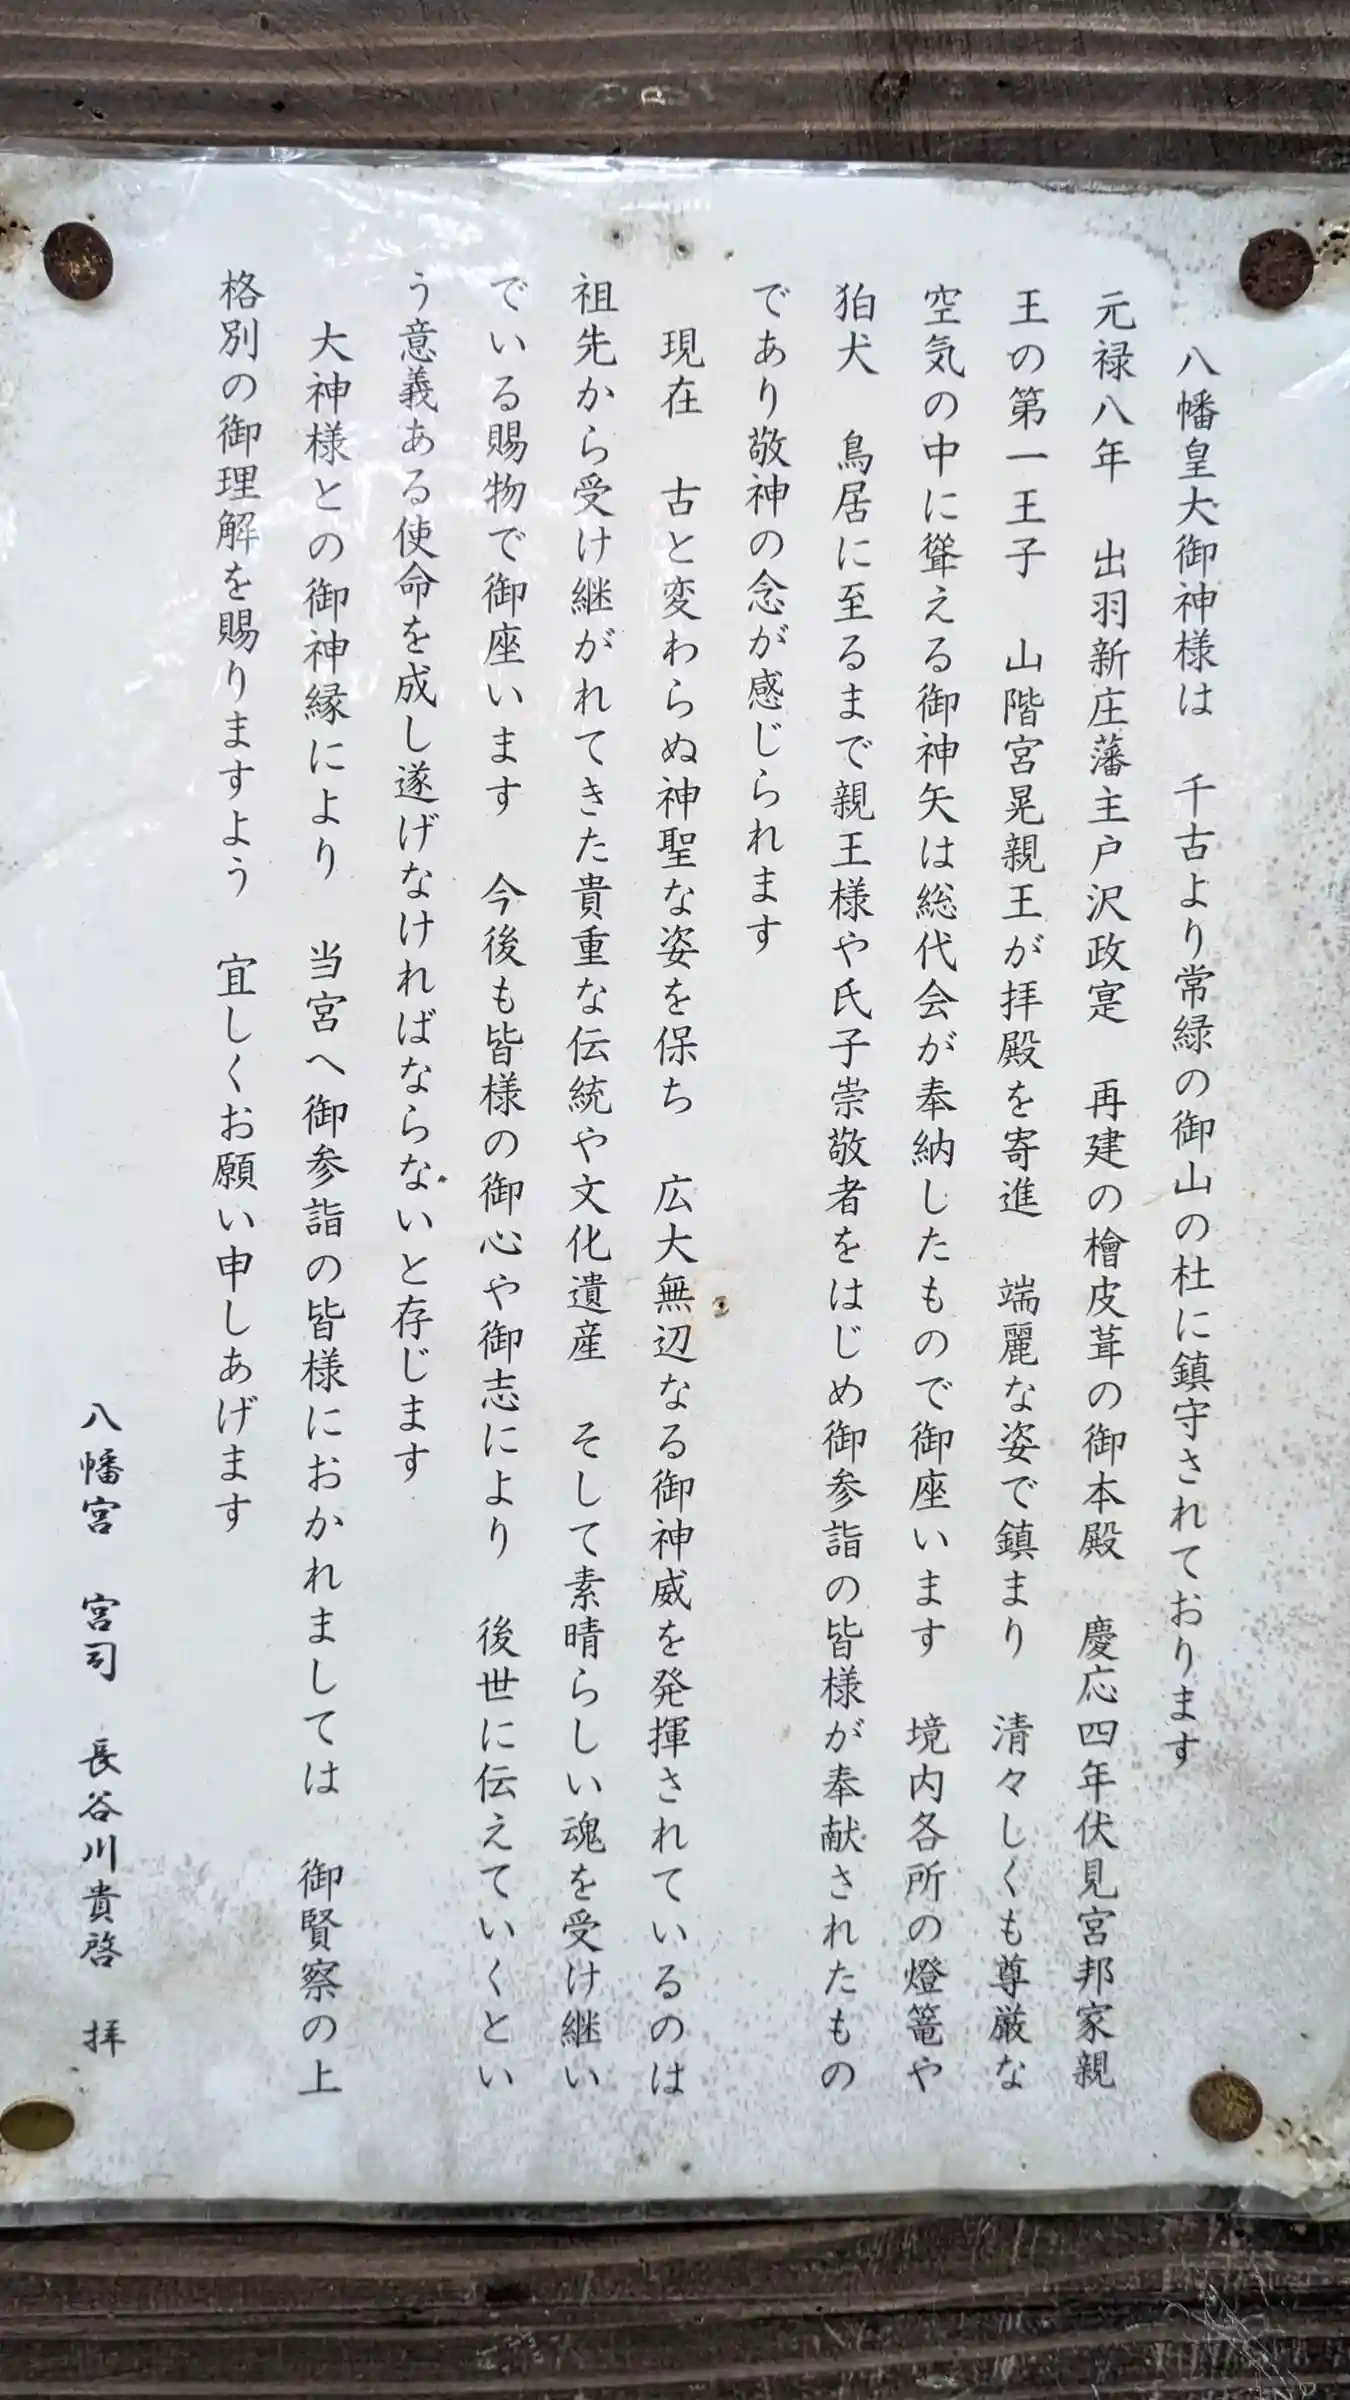 八幡皇大御神様は　千古より常緑の御山の杜に鎮守されております
元禄八年　出羽新庄藩主戸沢政寔　再建の檜皮葺の御本殿　慶応四年伏見宮邦家親
王の第一王子　山階宮晃親王が拝殿を寄進　端麗な姿で鎮まり　清々しくも尊厳な
空気の中に聳える御神矢は総代会が奉納したもので御座います　境内各所の燈篭や
狛犬　鳥居に至るまで親王様や氏子崇敬者をはじめ御参詣の皆様が奉献されたもの
であり敬神の念が感じられます
現在　古と変わらぬ神聖な姿を保ち　広大無辺なる御神威を発揮されているのは
祖先から受け継がれてきた貴重な伝統や文化遺産　そして素晴らしい魂を受け継い
でいる賜物で御座います　今後も皆様の御心や御志により　後世に伝えていくとい
う意義ある使命を成し遂げなければならないと存じます
大神様との御神縁により　当宮へ御参詣の皆様におかれましては　御賢察の上
格別の御理解を賜りますよう　宜しくお願い申しあげます
八幡宮　宮司　長谷川貴啓　拝